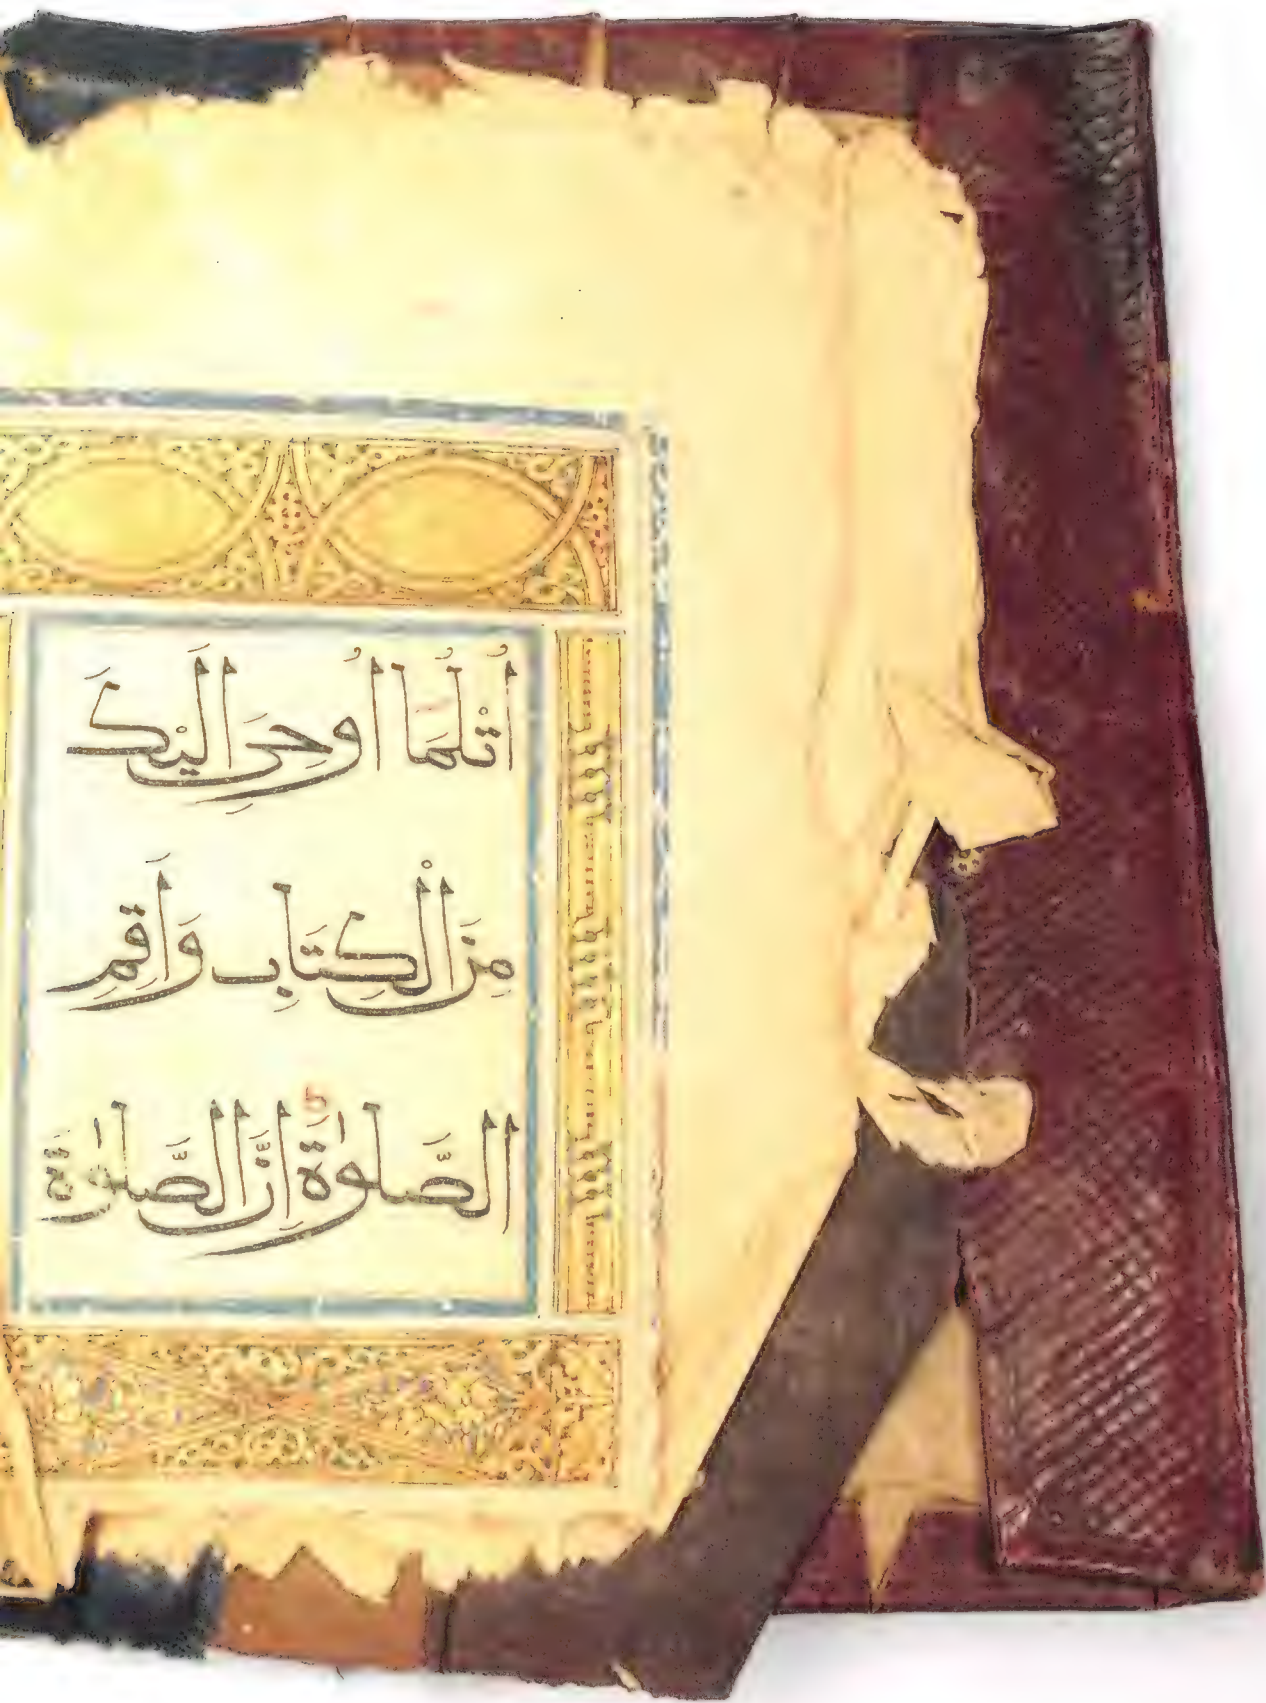 اُتْلُ مَا اُوحِىَ اِلَيْكَ
مِنَ الْكِتَابِ وَاَقِمِ
الصَّلٰوةَ اِنَّ الصَّلٰوةَ